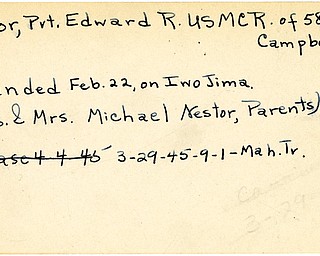 or, Pvt. Edward R. USMCR. of 58
Campb
nded Feb. 22, on Iwo Jima.
. & Mrs. Michael Nestor, Parents)
ase 4 4 45 3-29-45-9-1-Mah. Tr.
3-29